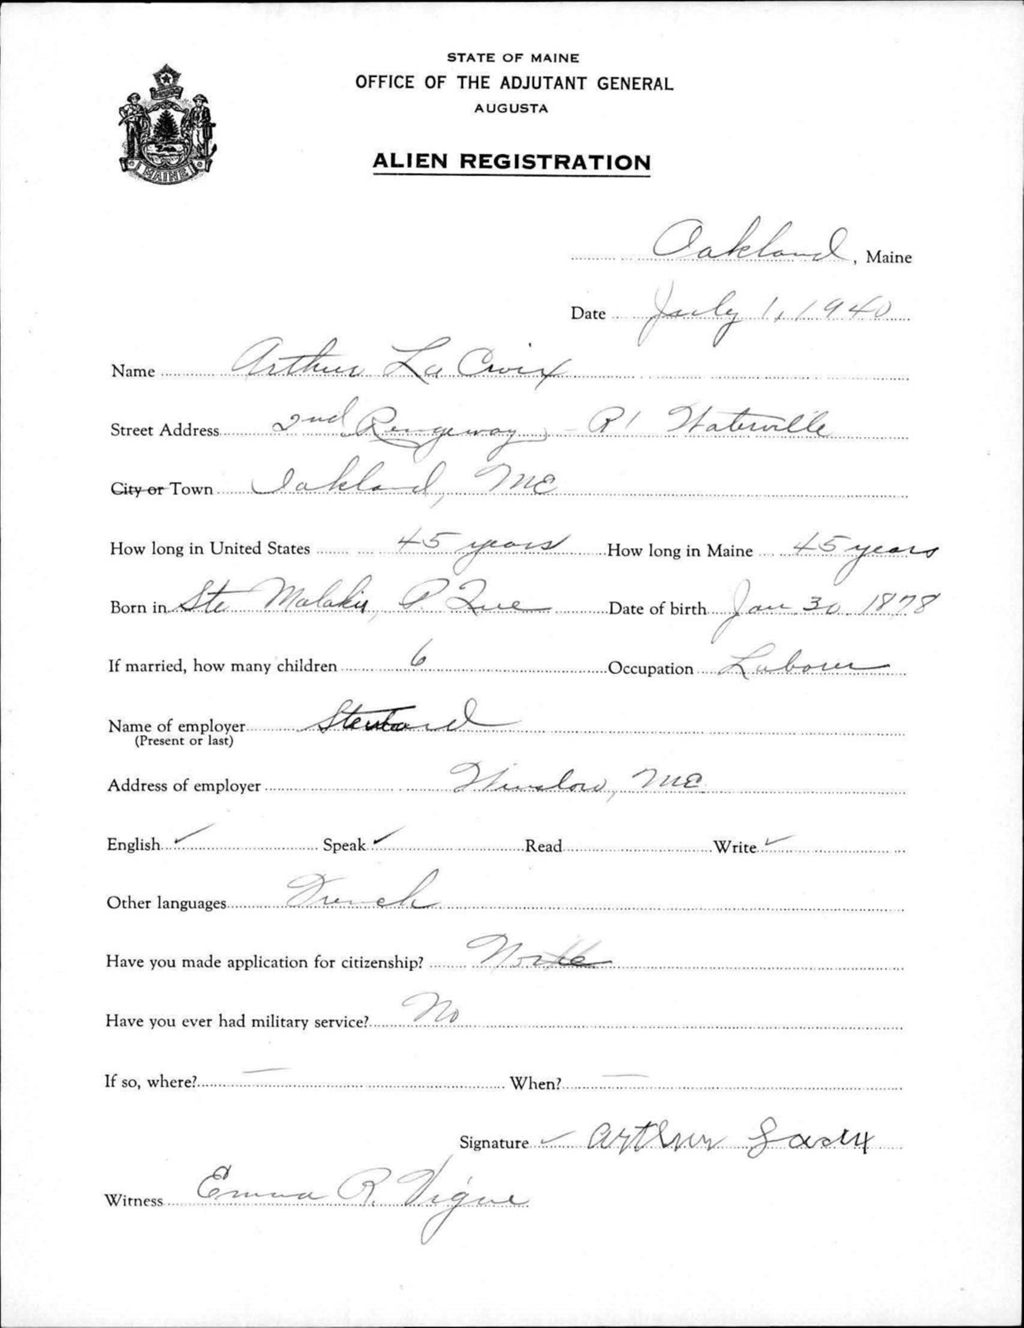 STATE OF MAINE
OFFICE OF THE ADJUTANT GENERAL
AUGUSTA
MAINE
ALIEN REGISTRATION
Oakland, Maine
Date July 1, 1940
Name Arthur La Croix
Street Address 2nd Rangeway - R1 Waterville
City or Town Oakland, ME
How long in United States 45 years How long in Maine 45 years
Born in Ste Malakis, P. Que Date of birth Jan 30 1878
If married, how many children 6 Occupation Laborer
Name of employer
(Present or last)
Address of employer Winslow, ME.
English ✓ Speak ✓ Read Write ✓
Other languages French
Have you made application for citizenship?
Have you ever had military service? No
If so, where? — When? —
Signature ✓ Arthur
Witness Emma R. Vigue